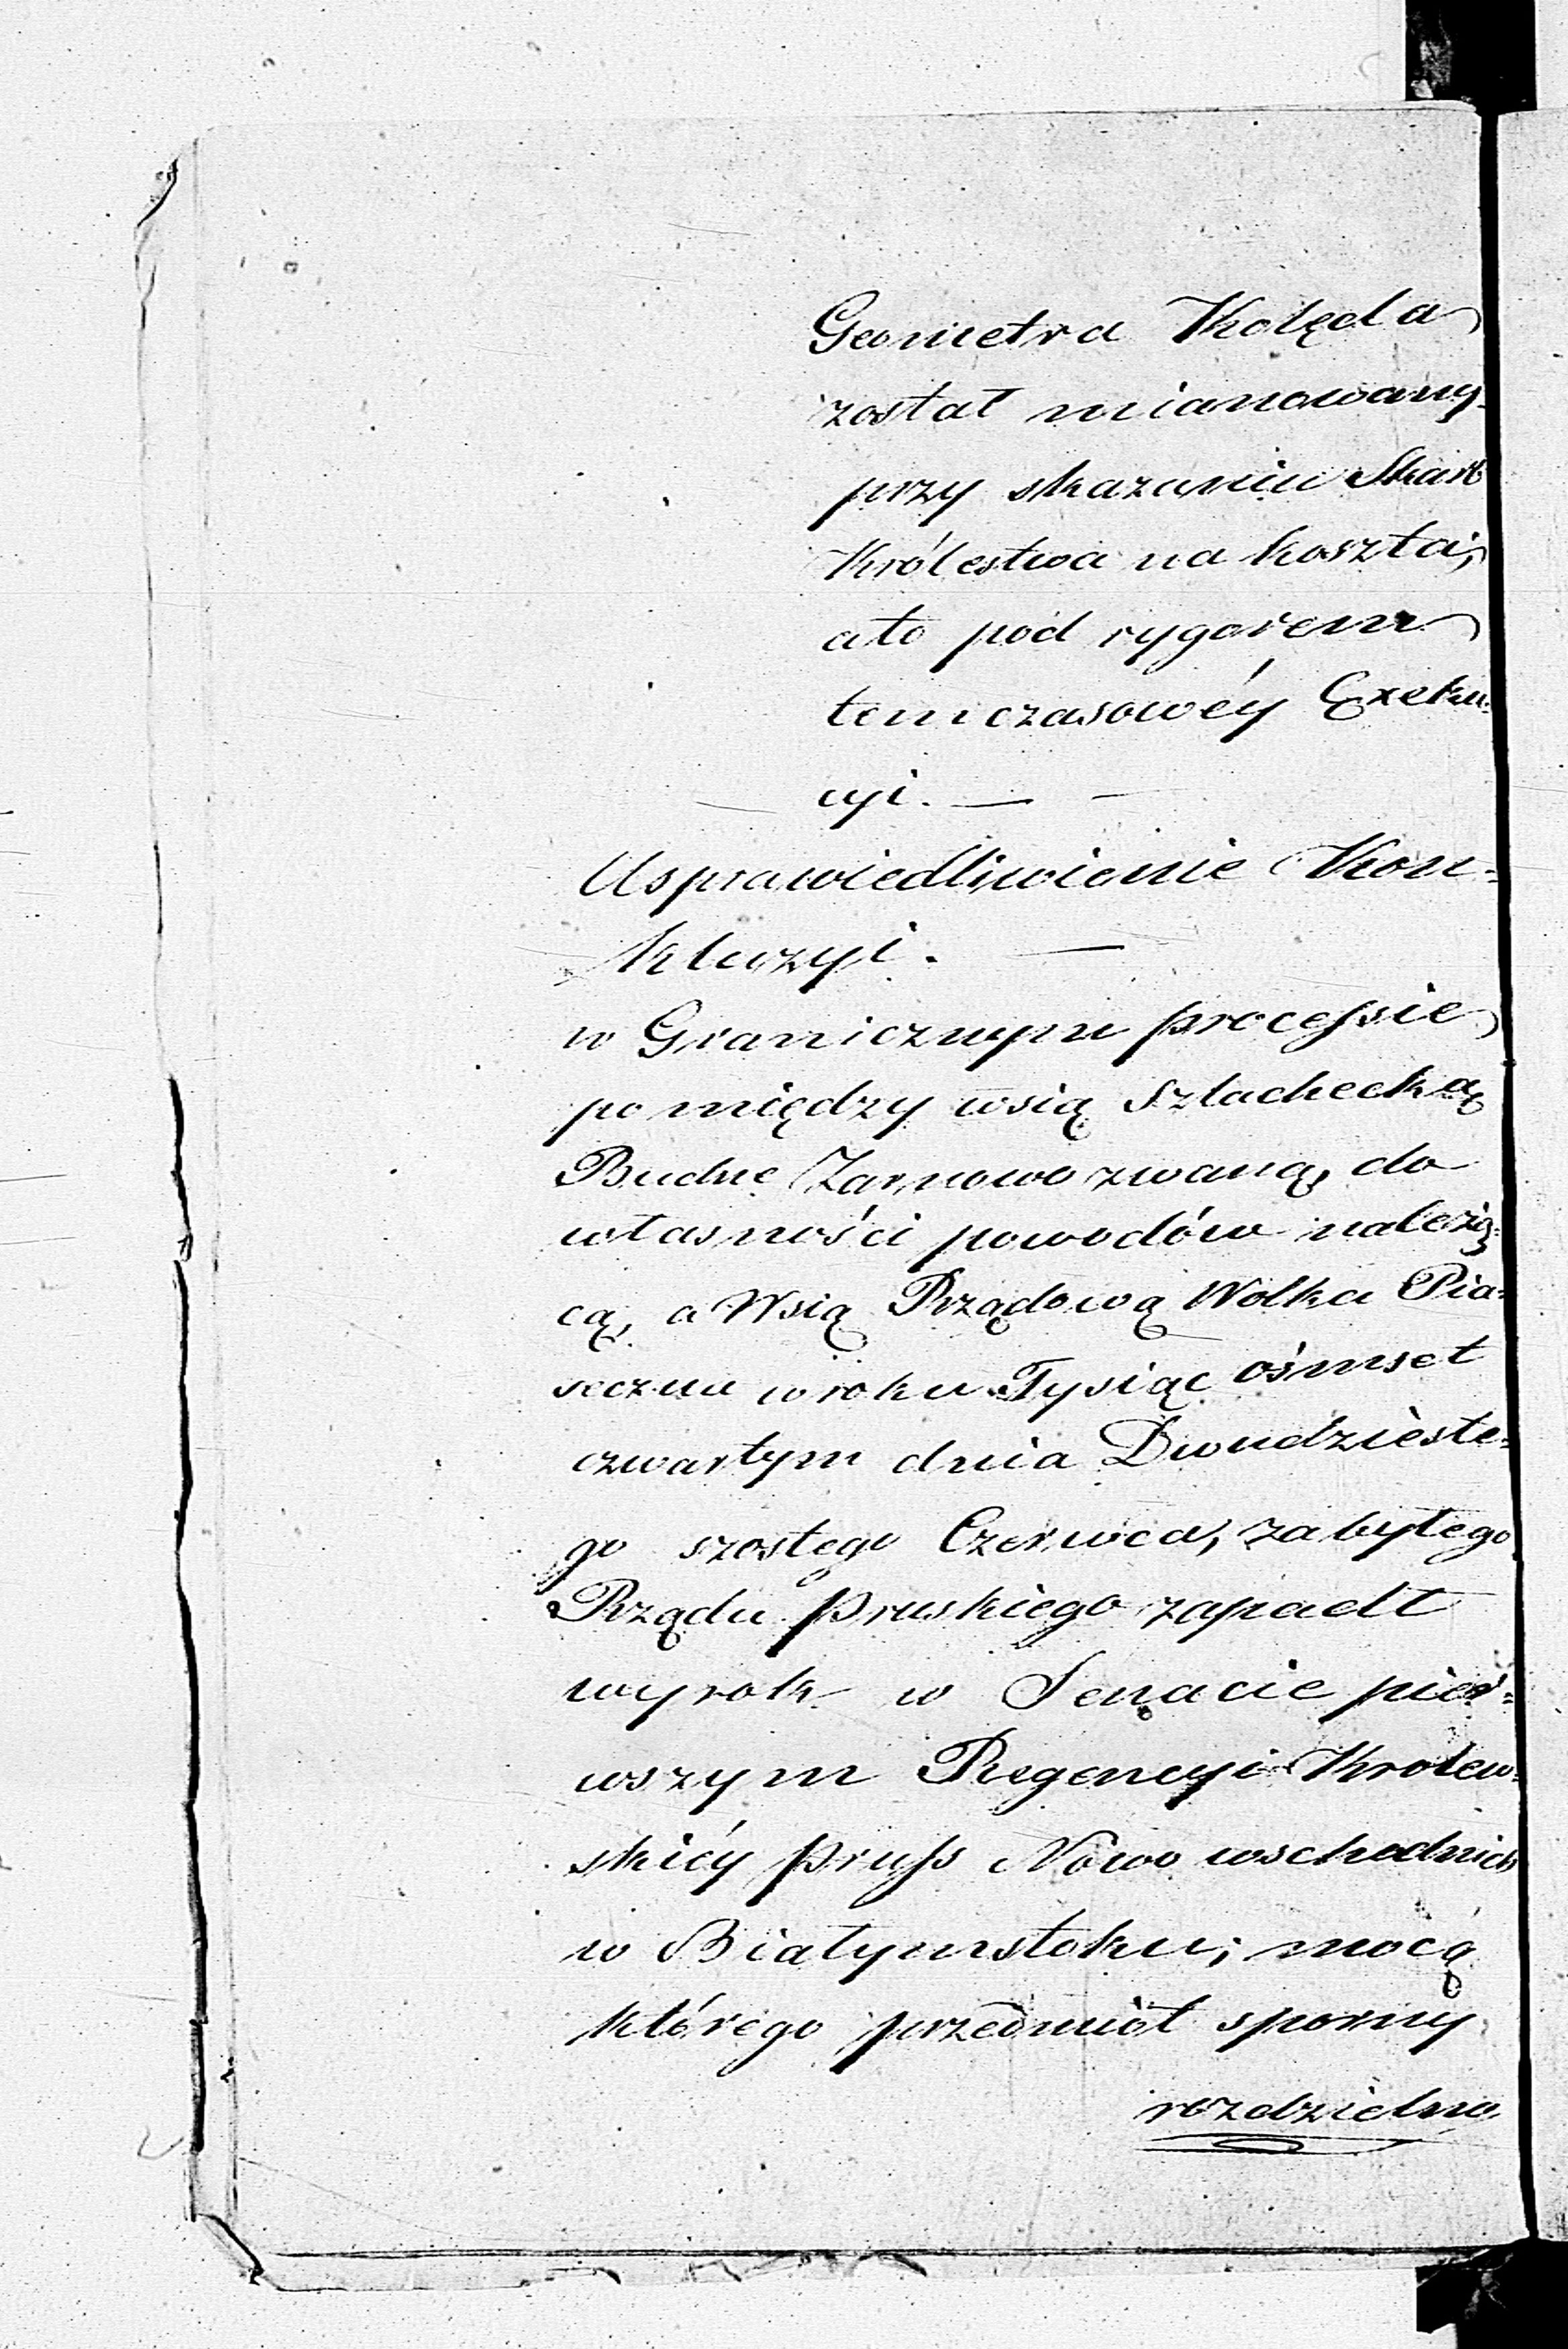 Geometra Kolęda
został mianowany
przy skazaniu Skarb
Królestwa na koszta,
ato pod rygorem
temczasowéy Exeku-
cyi. —
Usprawiedliwienie Kon-
kluzyi. —
w Granicznym processie
pomiędzy wsią szlachecką
Budne Zarnowo zwaną, do
własności powodów należą-
cą, a Wsią Rządową Wolka Pia-
seczna w roku Tysiąc ośmset
czwartym dnia Dwudzieste-
go szostego Czerwca, za byłego
Rządu Pruskiego zapadł
wyrok w Senacie pier-
wszym Regencyi Krolew-
skiéy Pruss Nowo wschodnich
w Białymstoku; mocą
którego przedmiot sporny
rozdzielno